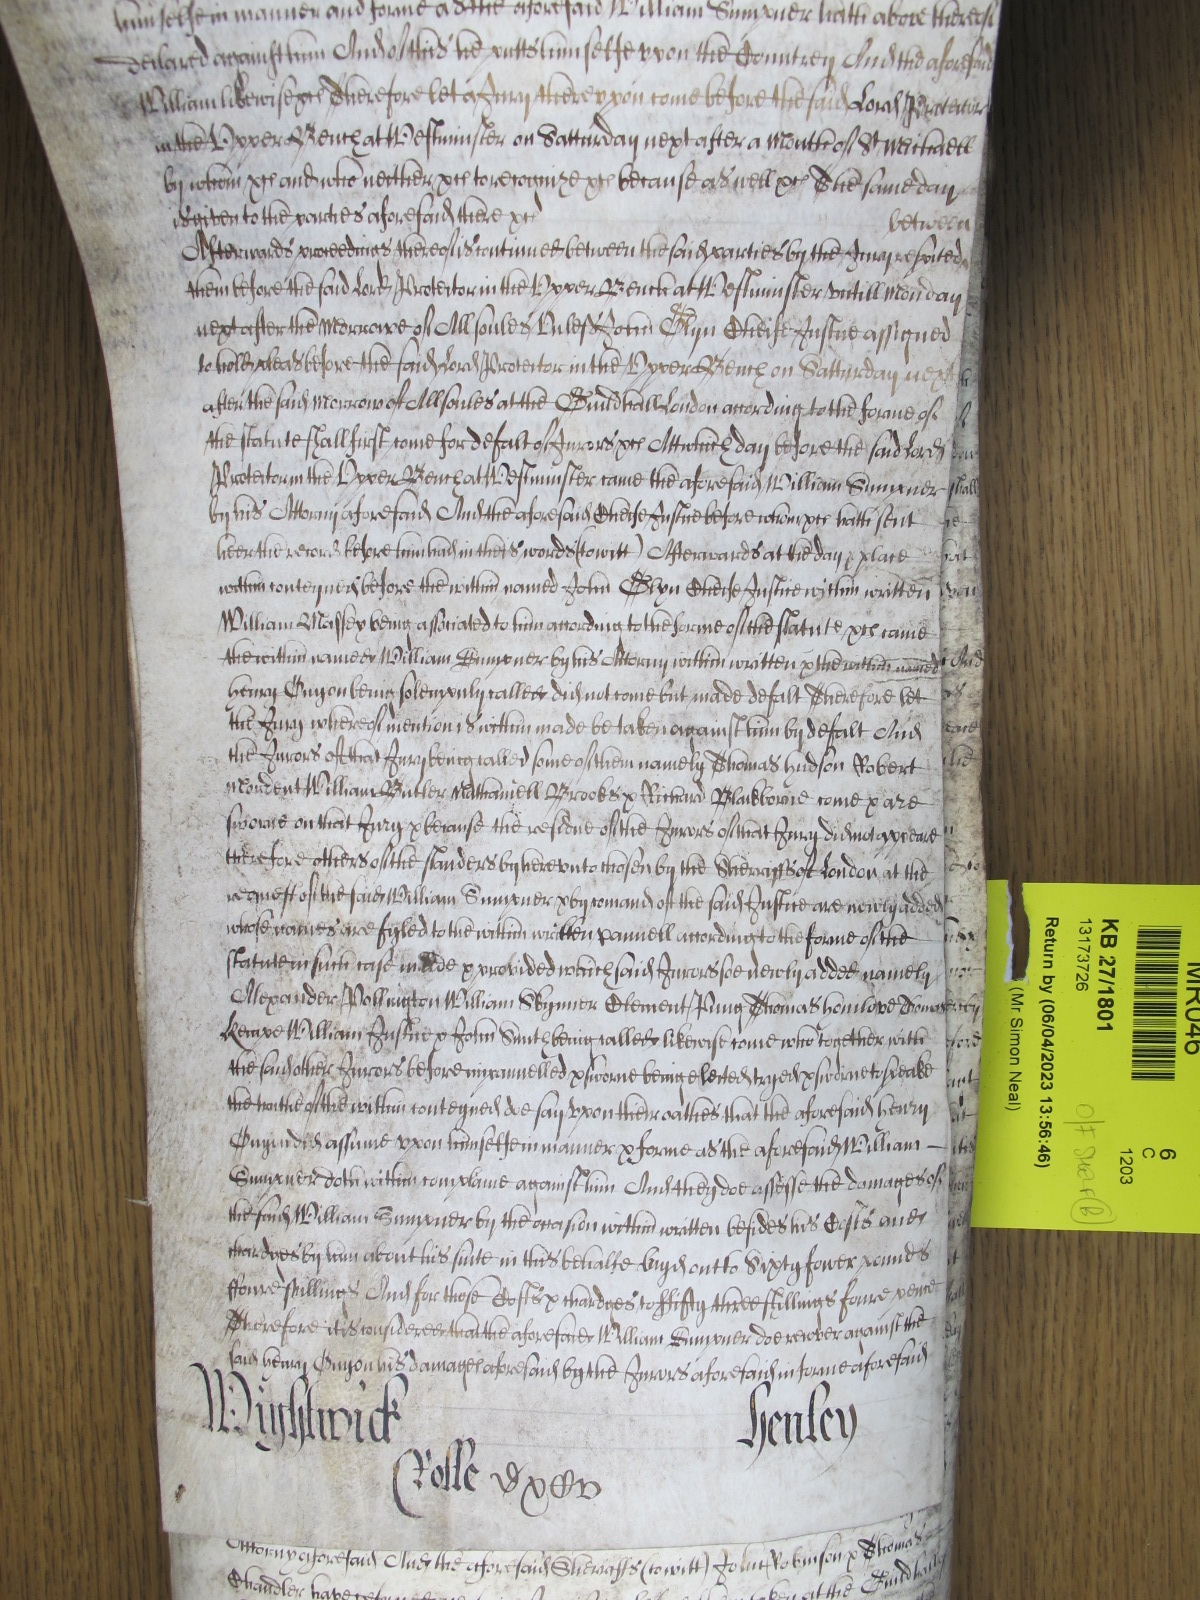 himselfe in manner and forme as the aforesaid William Sumpner hath above thereof
declared against him And of this he putts himselfe upon the Countrey And the aforesaid
William likewise &c Therefore let a Jury thereupon come before the said Lord Protector
in the Upper Bench at Westminster on Satturday next after a Month of St Michaell
by whom &c and who neither &c to recognize &c because aswell &c The same day
is given to the parties aforesaid there &c
Afterwards proceedings thereof is continued betweene the said parties by the Jury respited between
them before the said Lord Protector in the Upper Bench at Westminster untill Monday
next after the Morrowe of All soules Unless John Glyn Cheife Justice assigned
to hold pleas before the said Lord Protector in the Upper Bench on Satturday next
after the said Morrow of All soules at the Guildhall London according to the forme of
the statute shall first come for defalt of Jurors &c Att which day before the said Lord
Protector in the Upper Bench at Westminster came the aforesaid William Sumpner
by his Attorny aforesaid And the aforesaid Cheife Justice before whom &c hath sent
heer the record before him had in theis words (to witt) Afterwards at the day & place
within conteyned before the within named John Glyn Cheife Justice within written
William Massey being associated to him according to the forme of the statute &c came
the within named William Sumpner by his Attorny within written & the within named
Henry Gugon being solempnly called did not come but made defalt Therefore let
the Jury whereof mention is within made be taken against him by defalt And
the Jurors of that Jury being called some of them namely Thomas Hudson Robert
William Butler Nathaniell Brookes & Richard Blakborne come & are
sworne on that Jury & because the residue of the Jurors of that Jury did not appeare
therefore others of the standers by hereunto chosen by the Sherriffs of London at the
request of the said William Sumpner & by comand of the said Justice are newly added
whose names are fyled to the within written pannell according to the forme of the
statute in such case made & provided which said Jurors soe newly added namely
Alexander Pollington William Skynner Clement Pung Thomas Hemlove Thomas
Kempe William Justice & John Smith being called likewise come who together with
the said other Jurors before impannelled & sworne being elected tryed & sworne to speake
the truthe of the within conteyned doe say upon their oathes that the aforesaid Henry
Gugon did assume upon himselfe in manner & forme as the aforesaid William
Sumpner doth within complaine against him And they doe assesse the damages of
the said William Sumpner by the occasion within written besides his Costs and
chardges by him about his suite in this behalfe layd out to Sixty fower pounds
ffoure shillings And for those Costs & chardges to ffifty three shillings foure pence
Therefore it is considered that the aforesaid William Sumpner doe recover against the
said Henry Gugon his damages aforesaid by the Jurors aforesaid in forme aforesaid
Wightwick Henley
Rolle
Attorny aforesaid And the aforesaid Sherriffs (to witt) John Robinson & Thomas
Chandler have
MR046
KB 27/1801
13173726
Return by (06/04/2023 13:56:46)
(Mr Simon Neal)
6
C
1203